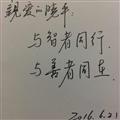 親爱的晓平:
与智者同行,
与善者同在.
2016.6.21